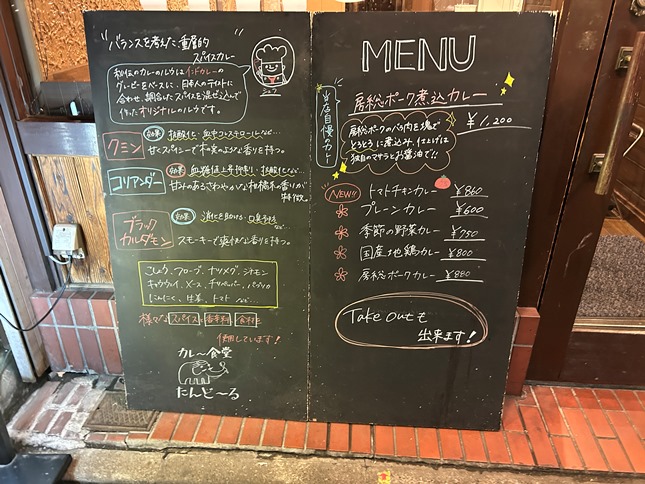 "バランスを考えた重層的
スパイスカレー"
当店のカレーのルウはインドカレーの
グレービーをベースに、日本人のテイストに
合わせ、調合したスパイスを混ぜ込んで
作ったオリジナルのルウです。
シェフ
クミン
効果 抗酸化・血中コレステロール など…
甘くスパイシーで木の実のような香りを持つ。
コリアンダー
効果 血糖値上昇抑制・抗酸化 など…
甘みのあるさわやかな柑橘系の香りが
特徴。
ブラック
カルダモン
効果 消化を助ける・口臭予防
など…
スモーキーで爽快な香りを持つ。
こしょう、クローブ、ナツメグ、シナモン
キャラウェイ、メース、チリペッパー、パプリカ
にんにく、生姜、トマト など…
様々なスパイス・香辛料・食材を
使用しています!
カレー食堂
たんどーる
MENU
当店自慢カレー
房総ポーク煮込カレー
¥1,200
房総ポークのバラ肉を塊で
とろとろに煮込み、仕上げは
独自のマサラとお醤油で!!
NEW!! トマトチキンカレー ¥860
プレーンカレー ¥600
季節の野菜カレー ¥750
国産地鶏カレー ¥800
房総ポークカレー ¥880
Take outも
出来ます!